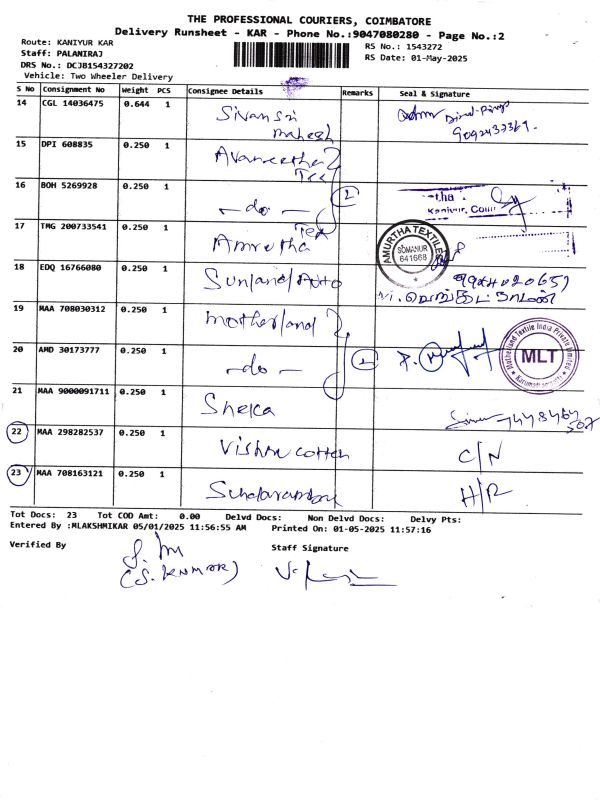 THE PROFESSIONAL COURIERS, COIMBATORE
Delivery Runsheet - KAR - Phone No.:9047080280 - Page No.:2
Route: KANIYUR KAR
RS No.: 1543272
Staff: PALANIRAJ
RS Date: 01-May-2025
DRS No.: DCJB154327202
Vehicle: Two Wheeler Delivery
S No Consignment No Weight PCS Consignee Details Remarks Seal & Signature
14 CGL 14036475 0.644 1 Sivansri
mahesh
15 DPI 608835 0.250 1
Tex
16 BOH 5269928 0.250 1 - do - 2
Kaniyur, Coim
17 TMG 200733541 0.250 1 Amrutha Tex
AMURTHA TEXTILE
SOMANUR
641668
18 EDQ 16766080 0.250 1 Sunland Auto
19 MAA 708030312 0.250 1 Motherland
20 AMD 30173777 0.250 1 - do - 2
Motherland Textile India Private Limited
MLT
21 MAA 9000091711 0.250 1
22 MAA 298282537 0.250 1 Vishnu cotton C/N
23 MAA 708163121 0.250 1 H/R
Tot Docs: 23 Tot COD Amt: 0.00 Delvd Docs: Non Delvd Docs: Delvy Pts:
Entered By :MLAKSHMIKAR 05/01/2025 11:56:55 AM Printed On: 01-05-2025 11:57:16
Verified By
Staff Signature
(S. KUMAR)